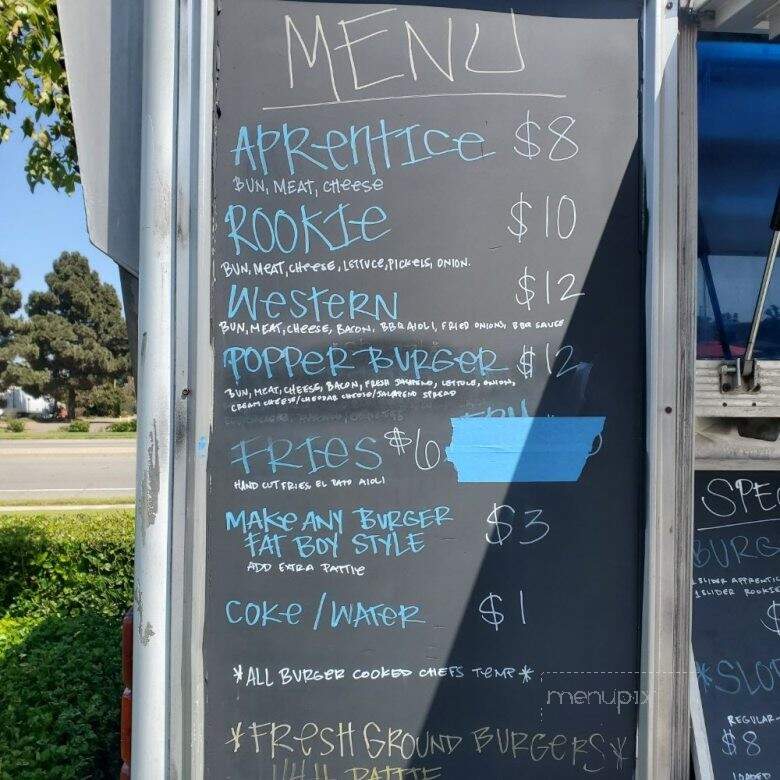 MENU
APRENTICE $8
BUN, MEAT, CHEESE
ROOKIE $10
BUN, MEAT, CHEESE, LETTUCE, PICKELS, ONION.
WESTERN $12
BUN, MEAT, CHEESE, BACON, BBQ AIOLI, FRIED ONIONS, BBQ SAUCE
POPPER BURGER $12
BUN, MEAT, CHEESE, BACON, FRESH JALAPENO, LETTUCE, ONIONS,
CREAM CHEESE/CHEDDAR CHEESE/JALAPENO SPREAD
FRIES $6
HAND CUT FRIES, EL PATO AIOLI
MAKE ANY BURGER $3
FAT BOY STYLE
ADD EXTRA PATTIE
COKE/WATER $1
*ALL BURGER COOKED CHEFS TEMP*
menupix
*FRESH GROUND BURGERS*
PATTIE
SPE
BURG
1 SLIDER APPRENTIC
1 SLIDER ROOKIE
$
*SLO
REGULAR
$8
LOADED